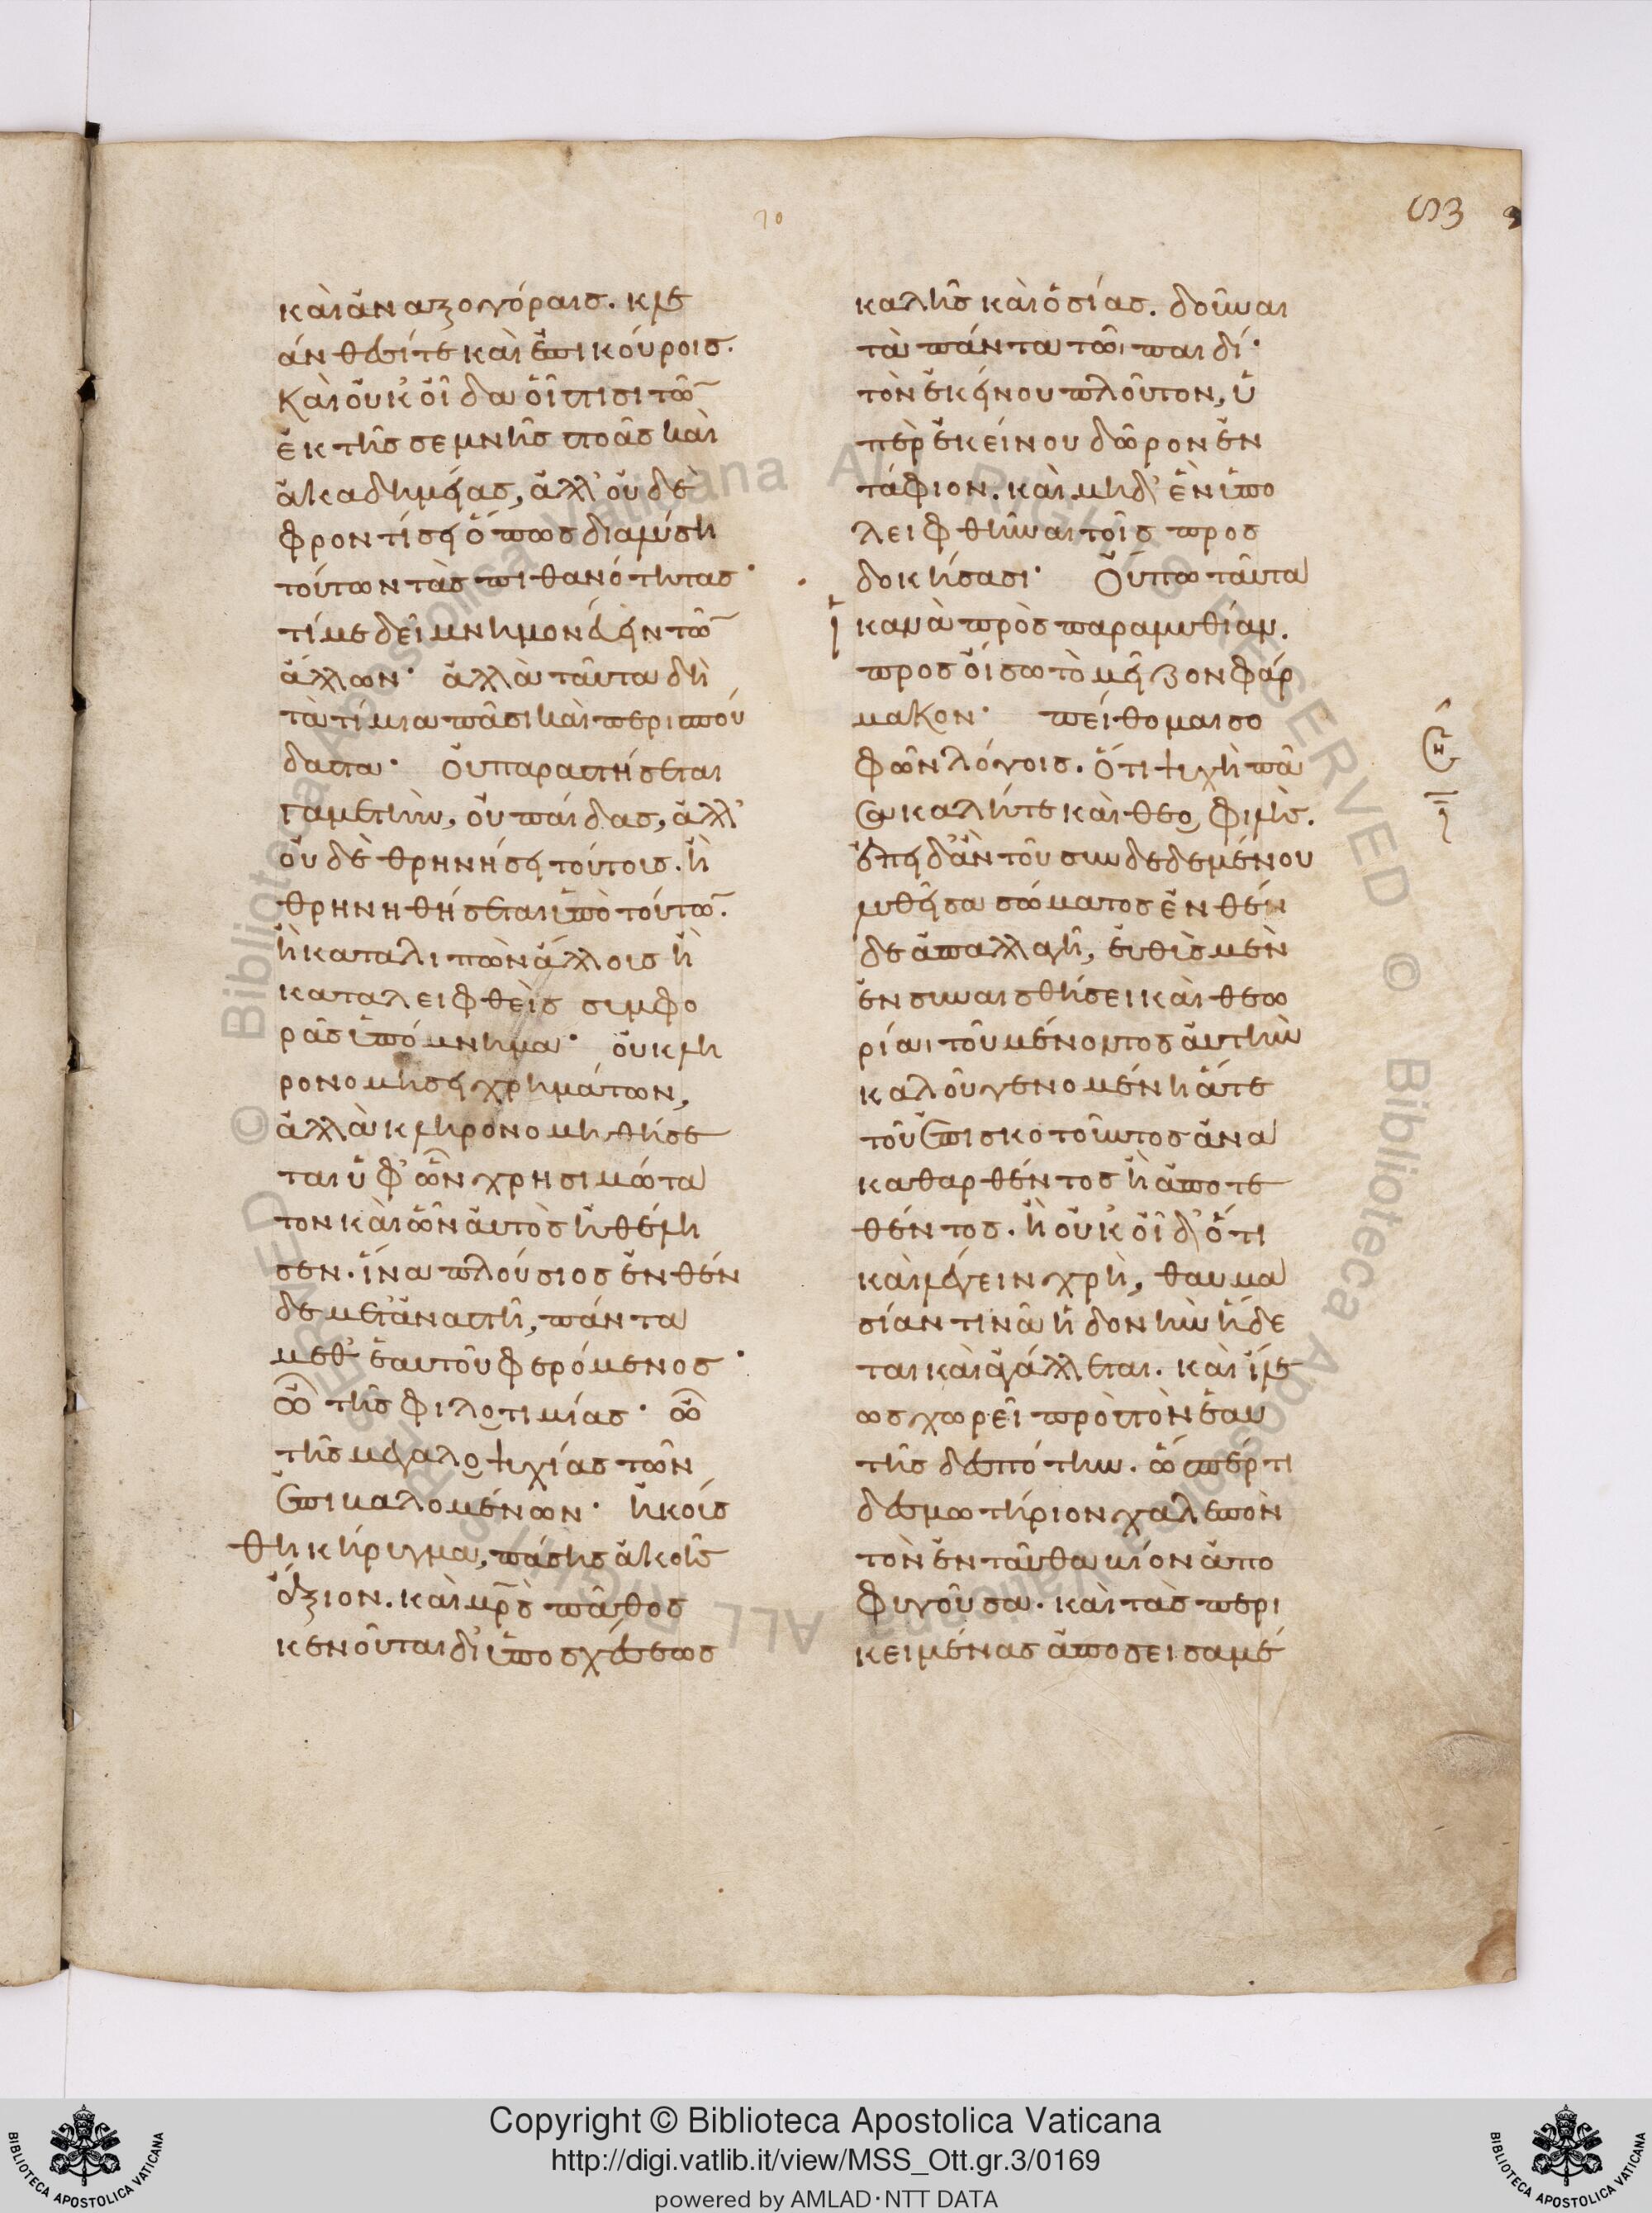 70
καὶ ἀναξογόραις. κλε
άνθεσί τε καὶ ἐπικούροις.
Καὶ οὐκ οἶδα οἷστισι τῶ̅
ἐκ τῆς σεμνῆς στοᾶς καὶ
ἀκαδημείας, ἀλλ' οὐδὲ
φροντίσει ὅπως διαλύση
τούτων τὰς πιθανότητας·
τί με δεῖ μνημονεύειν τῶ̅
ἄλλων· ἀλλὰ ταῦτα δὴ
τὰ τίμια πᾶσι καὶ περισπού
δαστα· Οὐ παραστήσεται
γαμετὴν, οὐ παίδας, ἀλλ'
οὐδὲ θρηνήσει τούτοις. ἢ
θρηνηθήσεται ὑπὸ τούτω̅.
ἢ καταλιπὼν ἄλλοις ἢ
καταλειφθεὶς συμφο
ρᾶς ὑπόμνημα· οὐ κλη
ρονομήσει χρημάτων,
ἀλλὰ κληρονομηθήσε
ται ὑφ' ὧν χρησιμώτα
τον καὶ ὧν αὐτὸς ἠθέλη
σεν. ἵνα πλούσιος ἐνθέν
δε μεταναστῆ, πάντα
μεθ' ἑαυτοῦ φερόμενος·
ὢ τῆς φιλοτιμίας· ὢ
τῆς μεγαλοψυχίας τῶν
ἐπικαλομένων· ἠκούσ
θη κήρυγμα, πάσης ἀκοῆς
ἄξιον. καὶ μρ̅ς πάθος
κενοῦται δι' ὑποσχέσεως
καλῆς καὶ ὁσίας. δοῦναι
τὰ πάντα τῶι παιδί·
τὸν ἐκείνου πλοῦτον, ὑ
πὲρ ἐκείνου δῶρον ἐν
τάφιον. καὶ μηδ' ἓν ὑπο
λειφθῆναι τοῖς προσ
δοκήσασι· Οὔπω ταῦτα
ἱκανὰ πρὸς παραμυθίαν.
προσοίσω τὸ μεῖζον φάρ
μακον· πείθομαι σο
φῶν λόγοις. ὅτι ψυχὴ πᾶ
σα καλή τε καὶ θεοφιλὴς.
ἐπειδὰν τοῦ συνδεδεμένου
λυθεῖσα σώματος ἐνθέν
δε ἀπαλλαγῆ, εὐθὺς μὲν
ἐν συναισθήσει καὶ θεω
ρίαι τοῦ μένοντος αὐτὴν
καλοῦ γενομένη ἅτε
τοῦ ἐπισκοτοῦντος ἀνα
καθαρθέντος ἢ ἀποτε
θέντος. ἢ οὐκ οἶδ' ὅτι
καὶ λέγειν χρὴ, θαυμα
σίαν τινὰ ἡδονὴν ἥδε
ται καὶ ἀγάλλεται. καὶ ἵλε
ως χωρεῖ πρὸς τὸν ἑαυ
τῆς δεσπότην. ὥσπέρ τι
δεσμωτήριον χαλεπὸν
τὸν ἐνταῦθα βίον ἀπο
φυγοῦσα. καὶ τὰς περι
κειμένας ἀποσεισαμέ
Copyright © Biblioteca Apostolica Vaticana
http://digi.vatlib.it/view/MSS_Ott.gr.3/0169
powered by AMLAD·NTT DATA
BIBLIOTECA APOSTOLICA VATICANA
BIBLIOTECA APOSTOLICA VATICANA